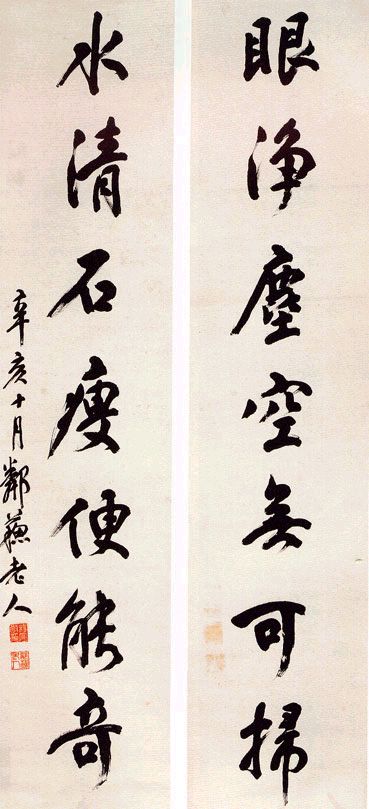 眼淨塵空無可掃
水清石瘦便能奇
辛亥十月鄰蘇老人